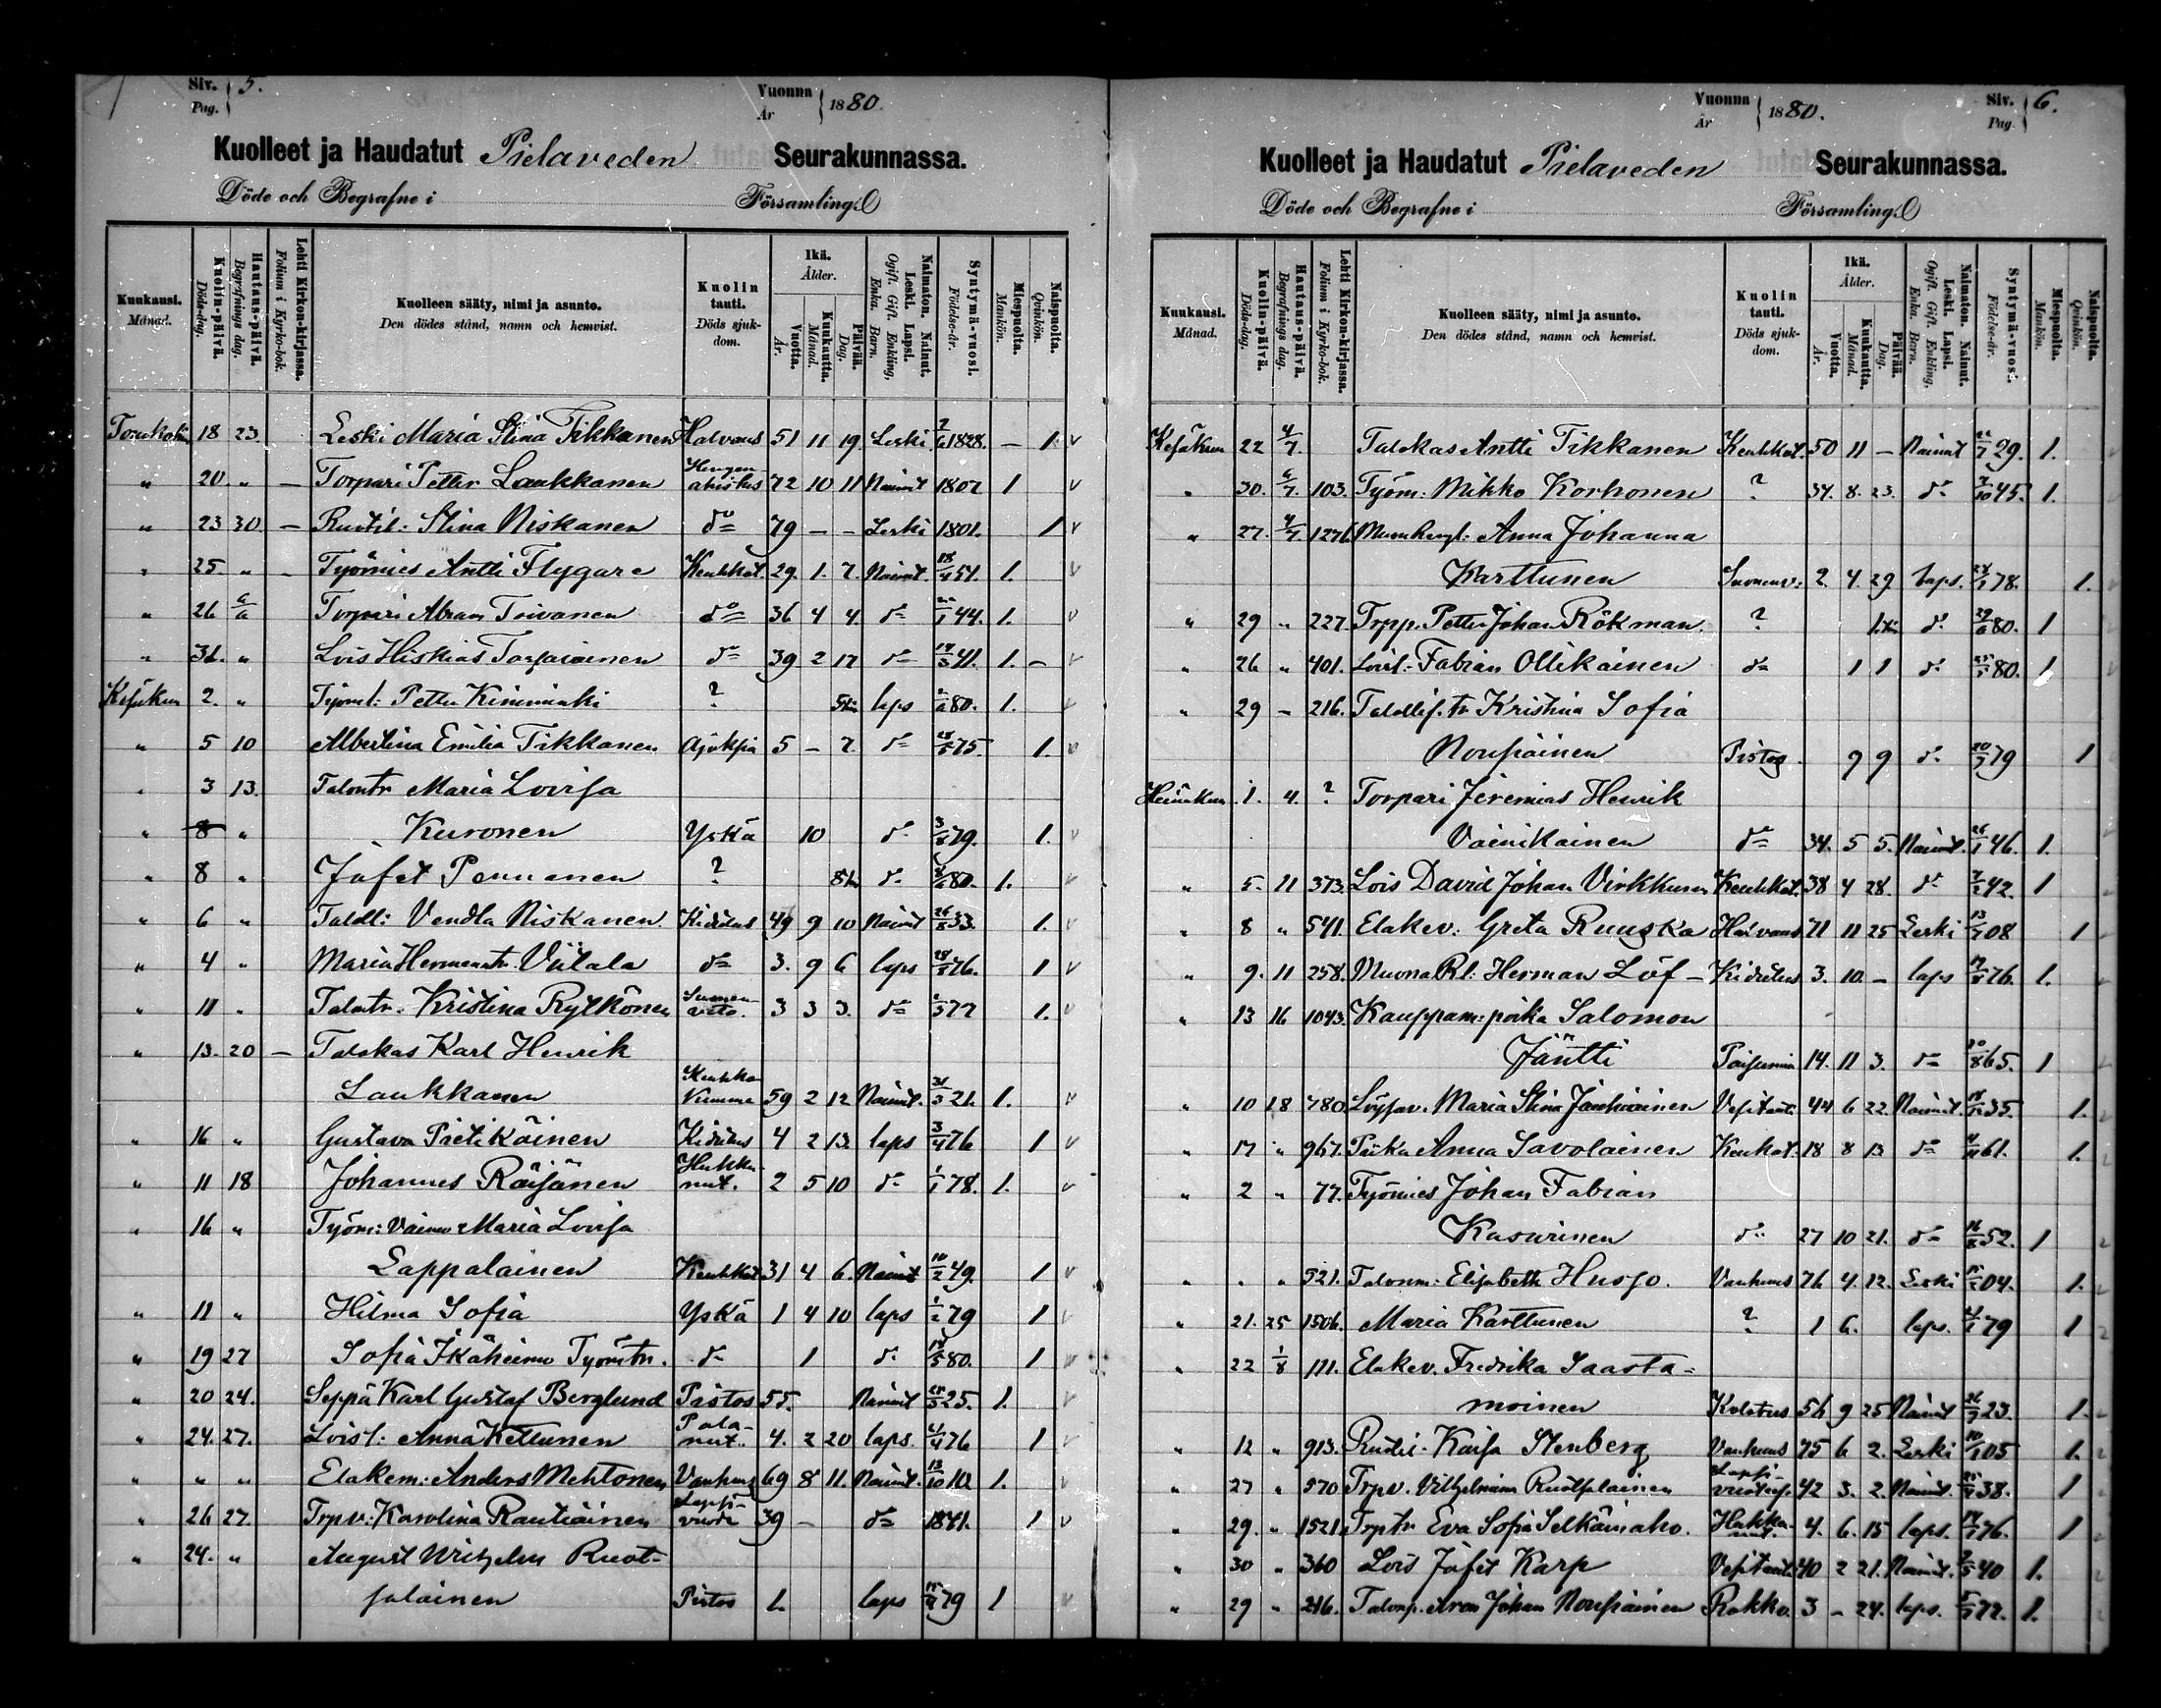 Siv. Pag. 5. Vuonna År 1880.
Kuolleet ja Haudatut Pielaveden Seurakunnassa.
Döde och Begrafne i Församling.
Kuukausi. Månad.
Kuolin-päivä. Döds-dag.
Hautaus-päivä. Begrafnings dag.
Lehti Kirkon-kirjassa. Folium i Kyrko-bok.
Kuolleen sääty, nimi ja asunto. Den dödes stånd, namn och hemvist.
Kuolin tauti. Döds sjukdom.
Ikä. Ålder. Vuotta. År. Kuukautta. Månad. Päivää. Dag.
Naimaton. Nainut. Leski. Lapsi. Ogift. Gift. Enkling, Enka. Barn.
Syntymä-vuosi. Födelse-år.
Miespuolta. Mankön.
Naispuolta. Qvinkön.
18 23 Leski Maria Stina Tikkanen Halvaus 51 11 19 Leski 1828. — 1
" 20 " — Torpari Petter Laukkanen Hengenahistus 72 10 11 Nainut 1807 1
" 23 30. — Ruotil: Stina Niskanen do 79 — — Leski 1801. 1
" 25. " — Työmies Antti Flygare Keuhkot. 29. 1. 7. Nainut. 51. 1.
" 26 6/6 Torpari Abram Toivanen do 36 4 4. do 44. 1.
" 31. " Lois Hiskias do 39 2 17 do 41. 1. —
Kesäkuu 2. " Työml: Petter Kiiminki ? laps 80. 1.
" 5 10 Albertina Emilia Tikkanen 5 — 7. do 75. 1.
" 3 13. Talontr Maria Lovisa
" 8 " Kuronen Yskä 10 do 79. 1.
" 8 " Jafet Pennanen ? do 80. 1.
" 6 " Taldl: Vendla Niskanen. Kidutus 49 9 10 Nainut 33. 1.
" 4 " Maria Hermanntr. Viitala do 3. 9 6 laps 28/8 76. 1
" 11 " Talontr. Kristina Rytkönen Suonenveto. 3 3 3. do 77 1.
" 13. 20 — Talokas Karl Henrik
Laukkanen Keuhkokuume 59 2 12 Nainut. 31/3 21. 1.
" 16 " Gustava Pietikäinen Kidutus 4 2 13 laps 3/4 76 1
" 11 18 Johannes Räisänen Hukkunut. 2 5 10 do 1/1 78. 1.
" 16 " Työm: Vaimo Maria Lovisa
Lappalainen Keuhkot 31 4 6. Nainut 10/2 49. 1
" 11 " Hilma Sofia Yskä 1 4 10 laps 1/2 79 1
" 19 27 Sofia Ikäheimo Työmtr. do 1 do 19/5 80. 1
" 20 24. Seppä Karl Gustaf Berglund Pistos 55. Nainut 25. 1.
" 24. 27. Loisl: Anna Kettunen Palanut. 4. 2 20 laps. 4/4 76 1
" " " Eläkem: Anders Mehtonen Vanhuus 69 8 11. Nainut. 13/10 10. 1.
" 26 27. Trpv: Karolina Rautiainen Lapsivuode 39 — do 1841. 1
" 24. " August Wilhelm Ruotsalainen Pistos 1. laps 79 1
Vuonna År 1880. Siv. Pag. 6.
Kuolleet ja Haudatut Pielaveden Seurakunnassa.
Döde och Begrafne i Församling.
Kuukausi. Månad.
Kuolin-päivä. Döds-dag.
Hautaus-päivä. Begrafnings dag.
Lehti Kirkon-kirjassa. Folium i Kyrko-bok.
Kuolleen sääty, nimi ja asunto. Den dödes stånd, namn och hemvist.
Kuolin tauti. Döds sjukdom.
Ikä. Ålder. Vuotta. År. Kuukautta. Månad. Päivää. Dag.
Naimaton. Nainut. Leski. Lapsi. Ogift. Gift. Enkling, Enka. Barn.
Syntymä-vuosi. Födelse-år.
Miespuolta. Mankön.
Naispuolta. Qvinkön.
Kesäkuu 22 4/7. Talokas Antti Tikkanen Keuhkot. 50 11 — Nainut 29. 1.
" 30. 6/7. 103. Työm: Mikko Korhonen ? 34. 8. 23. do 7/10 45. 1.
" 27. 4/7. 1276. Anna Johanna
Karttunen Suonenv: 2. 4. 29 laps. 28/1 78. 1.
" 29 " 227. Trpp. Petter Johan Rökman. ? do 29/6 80. 1
" 26 " 401. Loisl: Fabian Ollikainen do 1 1 do 25/5 80. 1
" 29 — 216. Kristina Sofia
Nousiainen Pistos 9 9 do 20/9 79 1
Heinäkuu 1. 4. ? Torpari Jeremias Henrik
Väinikainen do 34. 5 5. Nainut. 26/1 46. 1.
" 5. 11 373. Lois David Johan Virkkunen Keuhkot. 38 4 28. do 7/2 42. 1
" 8 " 541. Eläkev: Greta Ruuska Halvaus 71 11 25 Leski 13/7 08 1
" 9. 11 258. Herman Löf — Kidutus 3. 10. — laps 76. 1.
" 13 16 1043. Kauppam: poika Salomon
Jäntti 14. 11 3. do 65. 1
" 10 18 780. Maria Stina Janhiainen Vesitauti 44 6 22. Nainut. 18/12 35. 1.
" 17 " 967. Piika Anna Savolainen Keuhot. 18 8 13 do 61. 1.
" 2 " 77. Työmies Johan Fabian
Kasurinen do 27 10 21. do 52. 1
" " " 521. Talonm: Elisabeth Husso. Vanhuus 76 4. 12. Leski 04. 1.
" 21. 25 1506. Maria Karttunen ? 1 6. laps. 79 1
" 22 1/8 111. Eläkev. Fredrika Saastamoinen Kolotus 56 9 25 Nainut 26/9 23. 1.
" 12 " 913. Ruotil- Kaisa Stenberg Vanhuus 75 6 2. Leski 10/1 05 1.
" 27 " 570 Trpv. Vilhelmina Ruotsalainen 42 3. 2. Nainut. 25/4 38. 1
" 29. " 1521. Trptr Eva Sofia Selkämaho. Hukkunut. 4. 6. 15 laps. 14/1 76. 1
" 30 " 360 Lois Jafet Karp Vesitauti 40 2 21. Nainut. 9/5 40 1.
" 29 " 216. Talonp. Aron Johan Nousiainen Rokko. 3 — 24. laps. 5/7 77. 1.